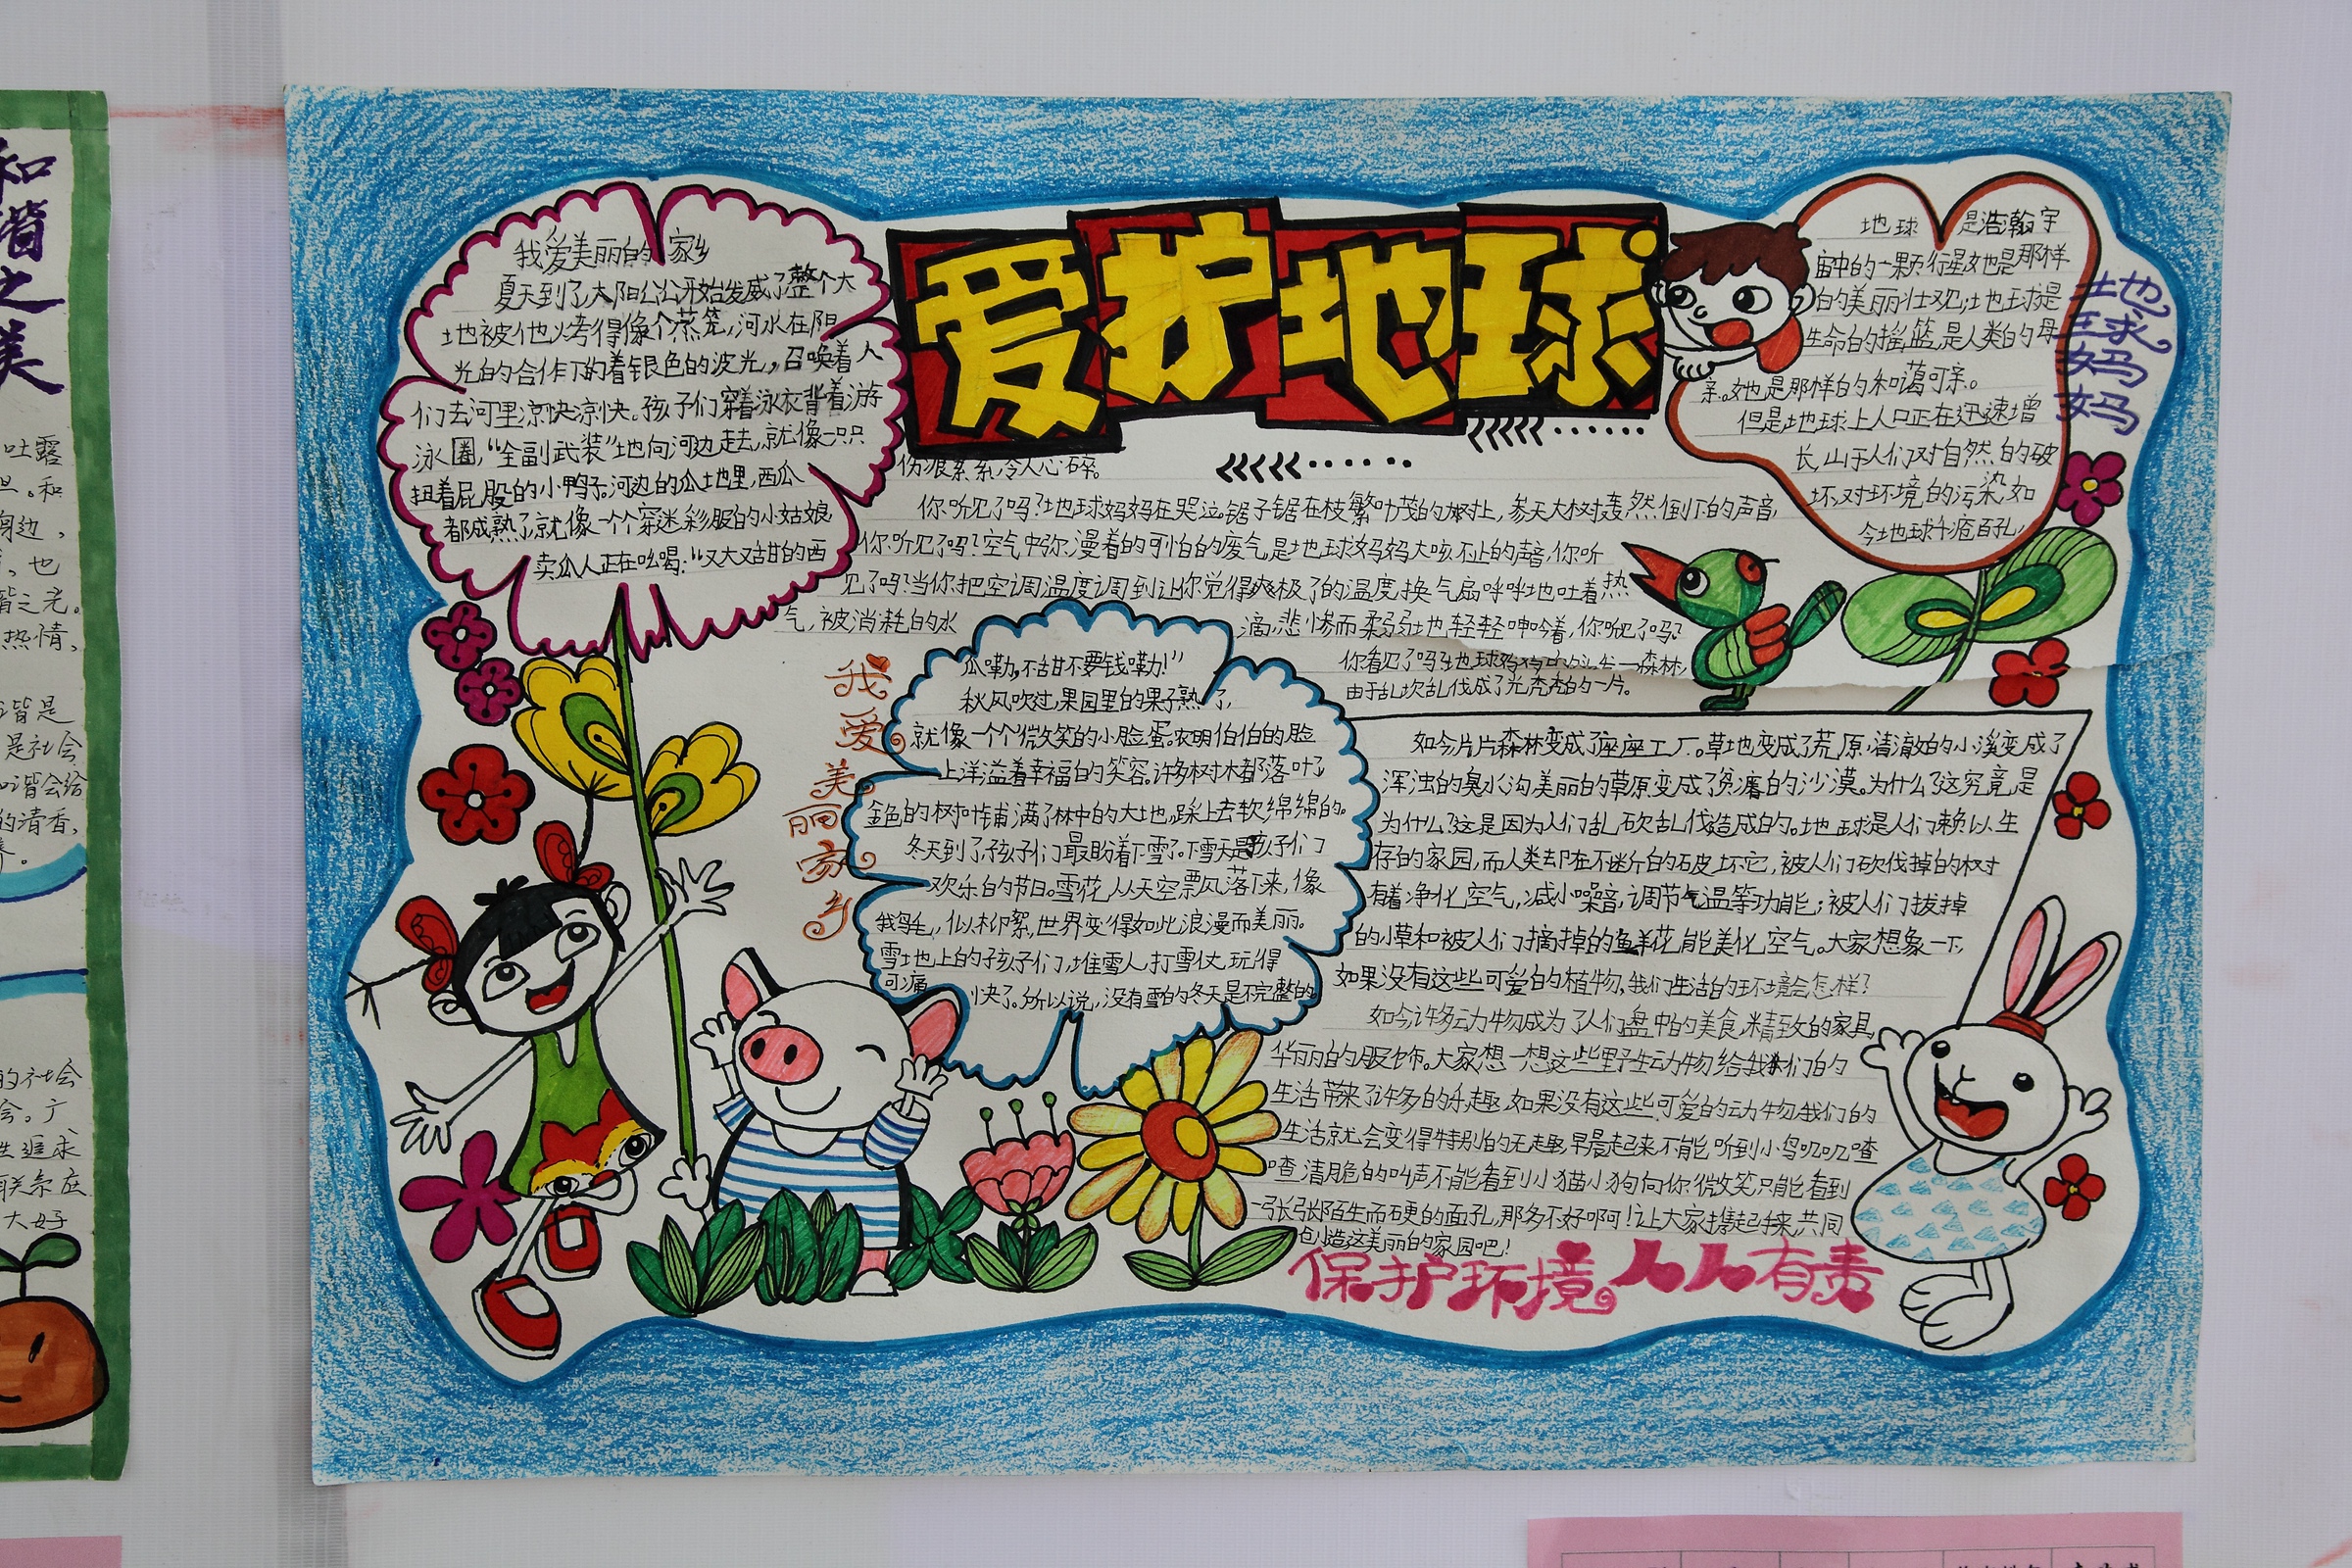 爱护地球
我爱美丽的家乡
夏天到了,太阳公公开始发威了整个大
地被他火考得像个蒸笼,河水在阳
光的合作下的着银色的波光,召唤着人
们去河里凉快凉快。孩子们穿着泳衣背着游
泳圈,“全副武装”地向河边走去,就像一只只
扭着屁股的小鸭子。河边的瓜地里,西瓜
都成熟了就像一个个穿迷彩服的小姑娘
卖瓜人正在吆喝:“又大又甜的西
瓜嘞,不甜不要钱嘞!”
秋风吹过,果园里的果子熟了,
就像一个个微笑的小脸蛋。农明伯伯的脸
上洋溢着幸福的笑容,许多树木都落叶了
金色的树叶铺满了林中的大地,踩上去软绵绵的。
冬天到了,孩子们最盼着下雪了。下雪天是孩子们
欢乐的节日。雪花,从天空飘落下来,像
似柳絮,世界变得如此浪漫而美丽。
雪地上的孩子们,堆雪人,打雪仗,玩得
可痛快了。所以说,没有雪的冬天是不完整的
我爱美丽家乡
地球妈妈
地球是浩瀚宇
宙中的一颗行星她也是那样
的美丽壮观;地球是
生命的摇篮,是人类的母
亲。她也是那样的和蔼可亲。
但是地球上人口正在迅速增
长,由于人们对自然的破
坏,对环境的污染,如
今地球千疮百孔,
伤痕累累,令人心碎。
你听见了吗?地球妈妈在哭泣,锯子锯在枝繁叶茂的树上,参天大树轰然倒下的声音,
你听见了吗?空气中弥漫着的可怕的废气,是地球妈妈大咳不止的声音,你听
见了吗?当你把空调温度调到让你觉得爽极了的温度,换气扇呼呼地吐着热
气,被消耗的水滴,悲惨而柔弱地轻轻呻吟着,你听见了吗?
你看见了吗?地球妈妈的头发—森林,
由于乱坎乱伐成了光秃秃的一片。
如今片片森林变成了座座工厂。草地变成了荒原,清澈的小溪变成了
浑浊的臭水沟,美丽的草原变成了贫瘠的沙漠。为什么?这究竟是
为什么?这是因为人们乱砍乱伐造成的。地球是人们赖以生
存的家园,而人类却在不断的破坏它,被人们砍伐掉的树
有着净化空气,减小噪音,调节气温等功能;被人们拔掉
的小草和被人们摘掉的鲜花能美化空气。大家想象一下,
如果没有这些可爱的植物,我们生活的环境会怎样?
如今许多动物成为了人们盘中的美食,精致的家具,
华丽的服饰。大家想一想这些野生动物给我们的
生活带来了许多的乐趣,如果没有这些可爱的动物我们的
生活就会变得特别的无趣,早晨起来不能听到小鸟叽叽喳
喳,清脆的叫声,不能看到小猫小狗向你微笑,只能看到
一张张陌生而硬的面孔,那多不好啊!让大家携起手来,共同
创造这美丽的家园吧!
保护环境。人人有责
和谐之美
吐露
。和
身边,
,也
谐之光。
热情,
谐是
是社会
和谐会给
的清香,
的社会
会。广
性追求
联系庭
大好